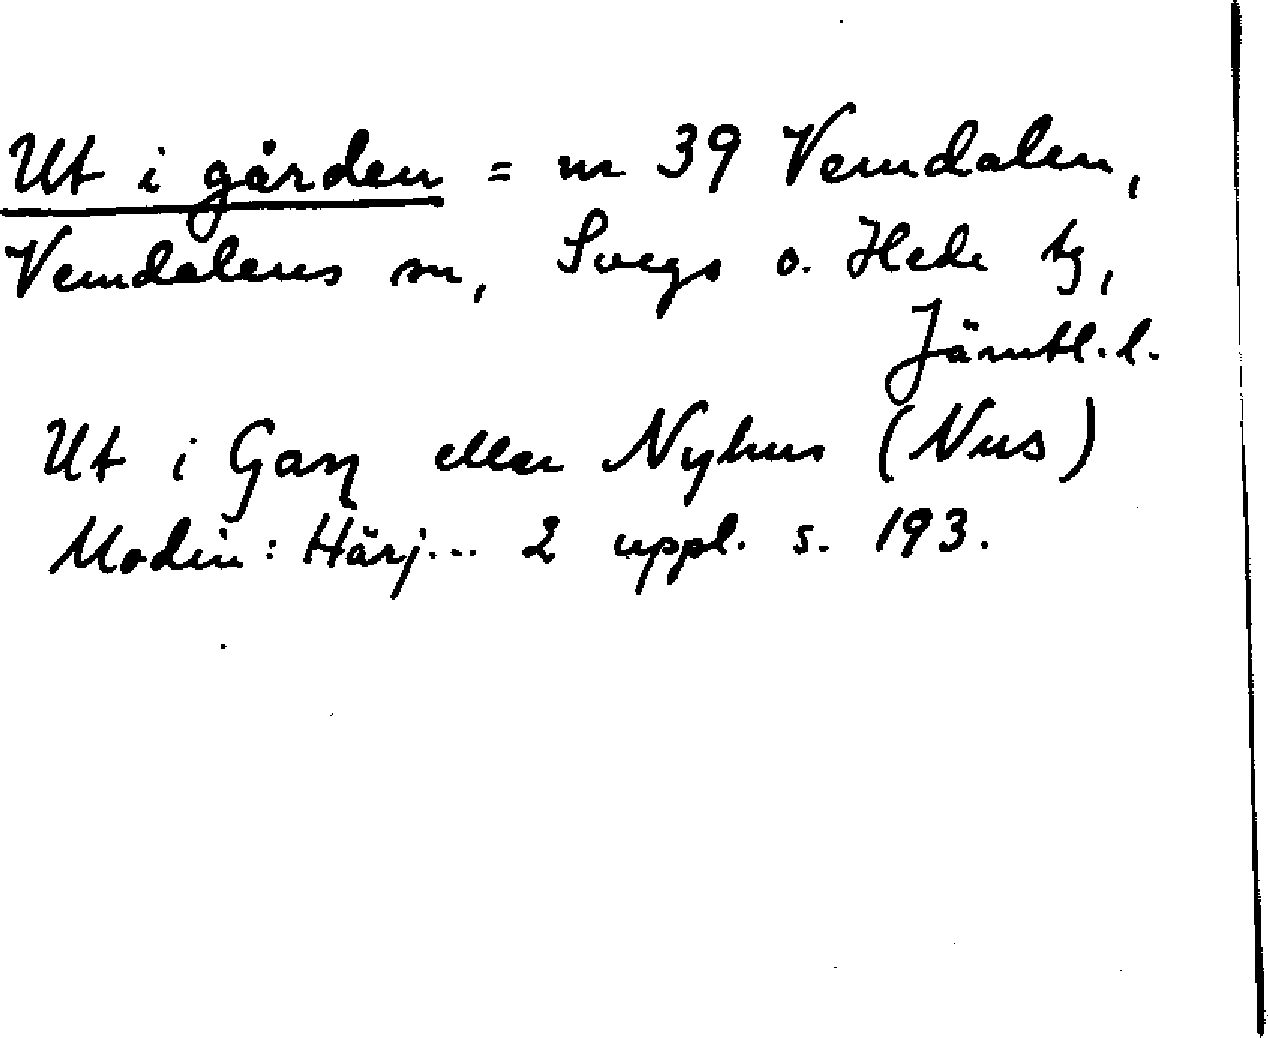 Ut i gården = nr 39 Vemdalen,
Vemdalens sn, Svegs o. Hede tg,
Jämtl. l.
Ut i Gaɳ eller Nyhus (Nus)
Modin: Härj... 2 uppl. s. 193.